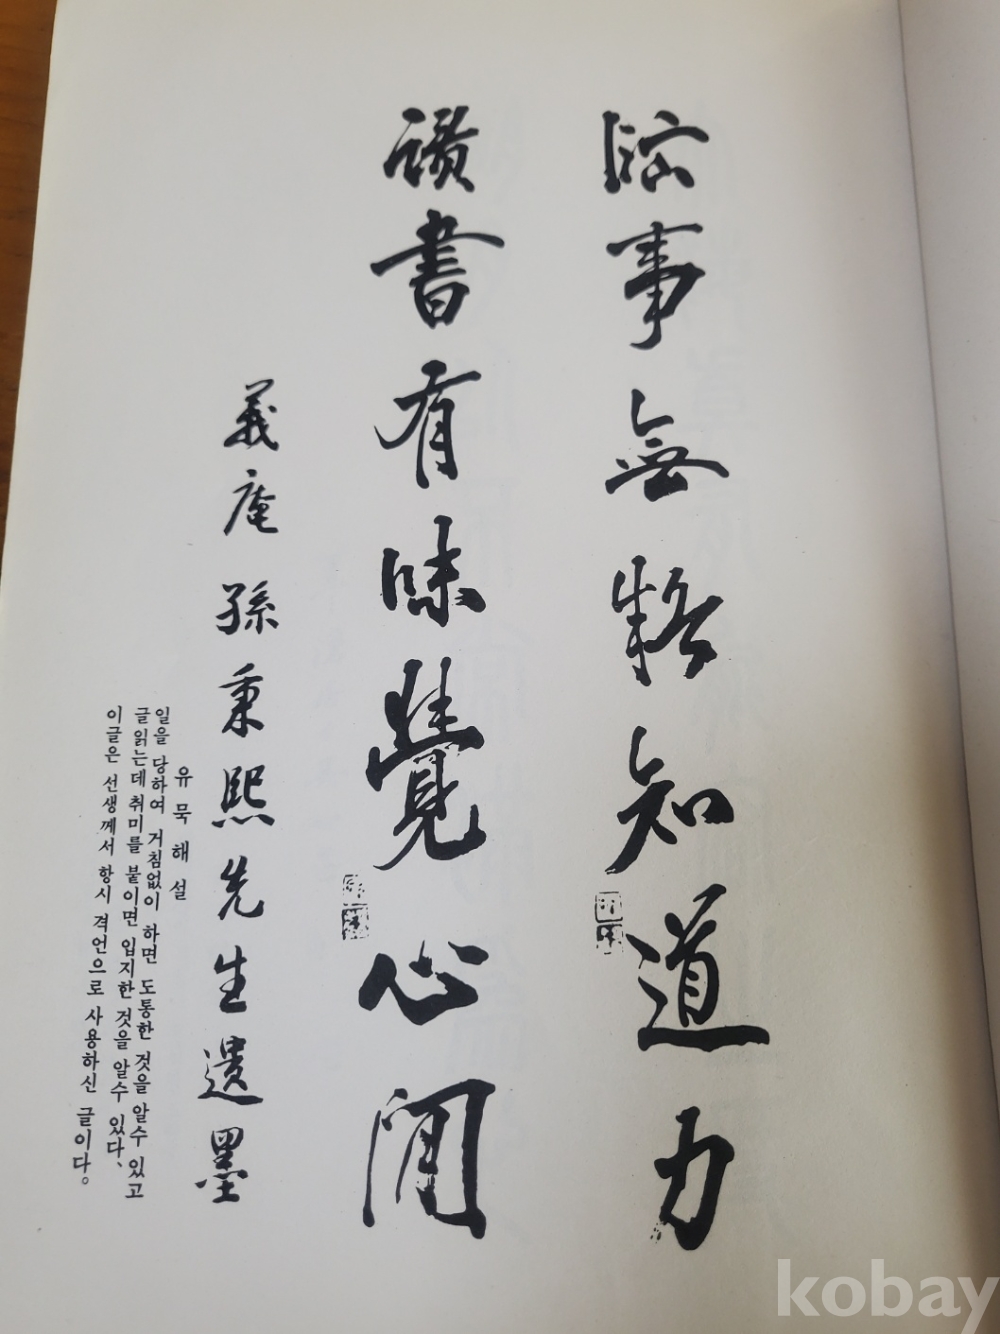 臨事無難知道力
讀書有味覺心閒
義庵孫秉熙先生遺墨
유묵해설
일을 당하여 거침없이 하면 도통한 것을 알수 있고
글읽는데 취미를 붙이면 입지한 것을 알수 있다、
이글은 선생께서 항시 격언으로 사용하신 글이다。
kobay